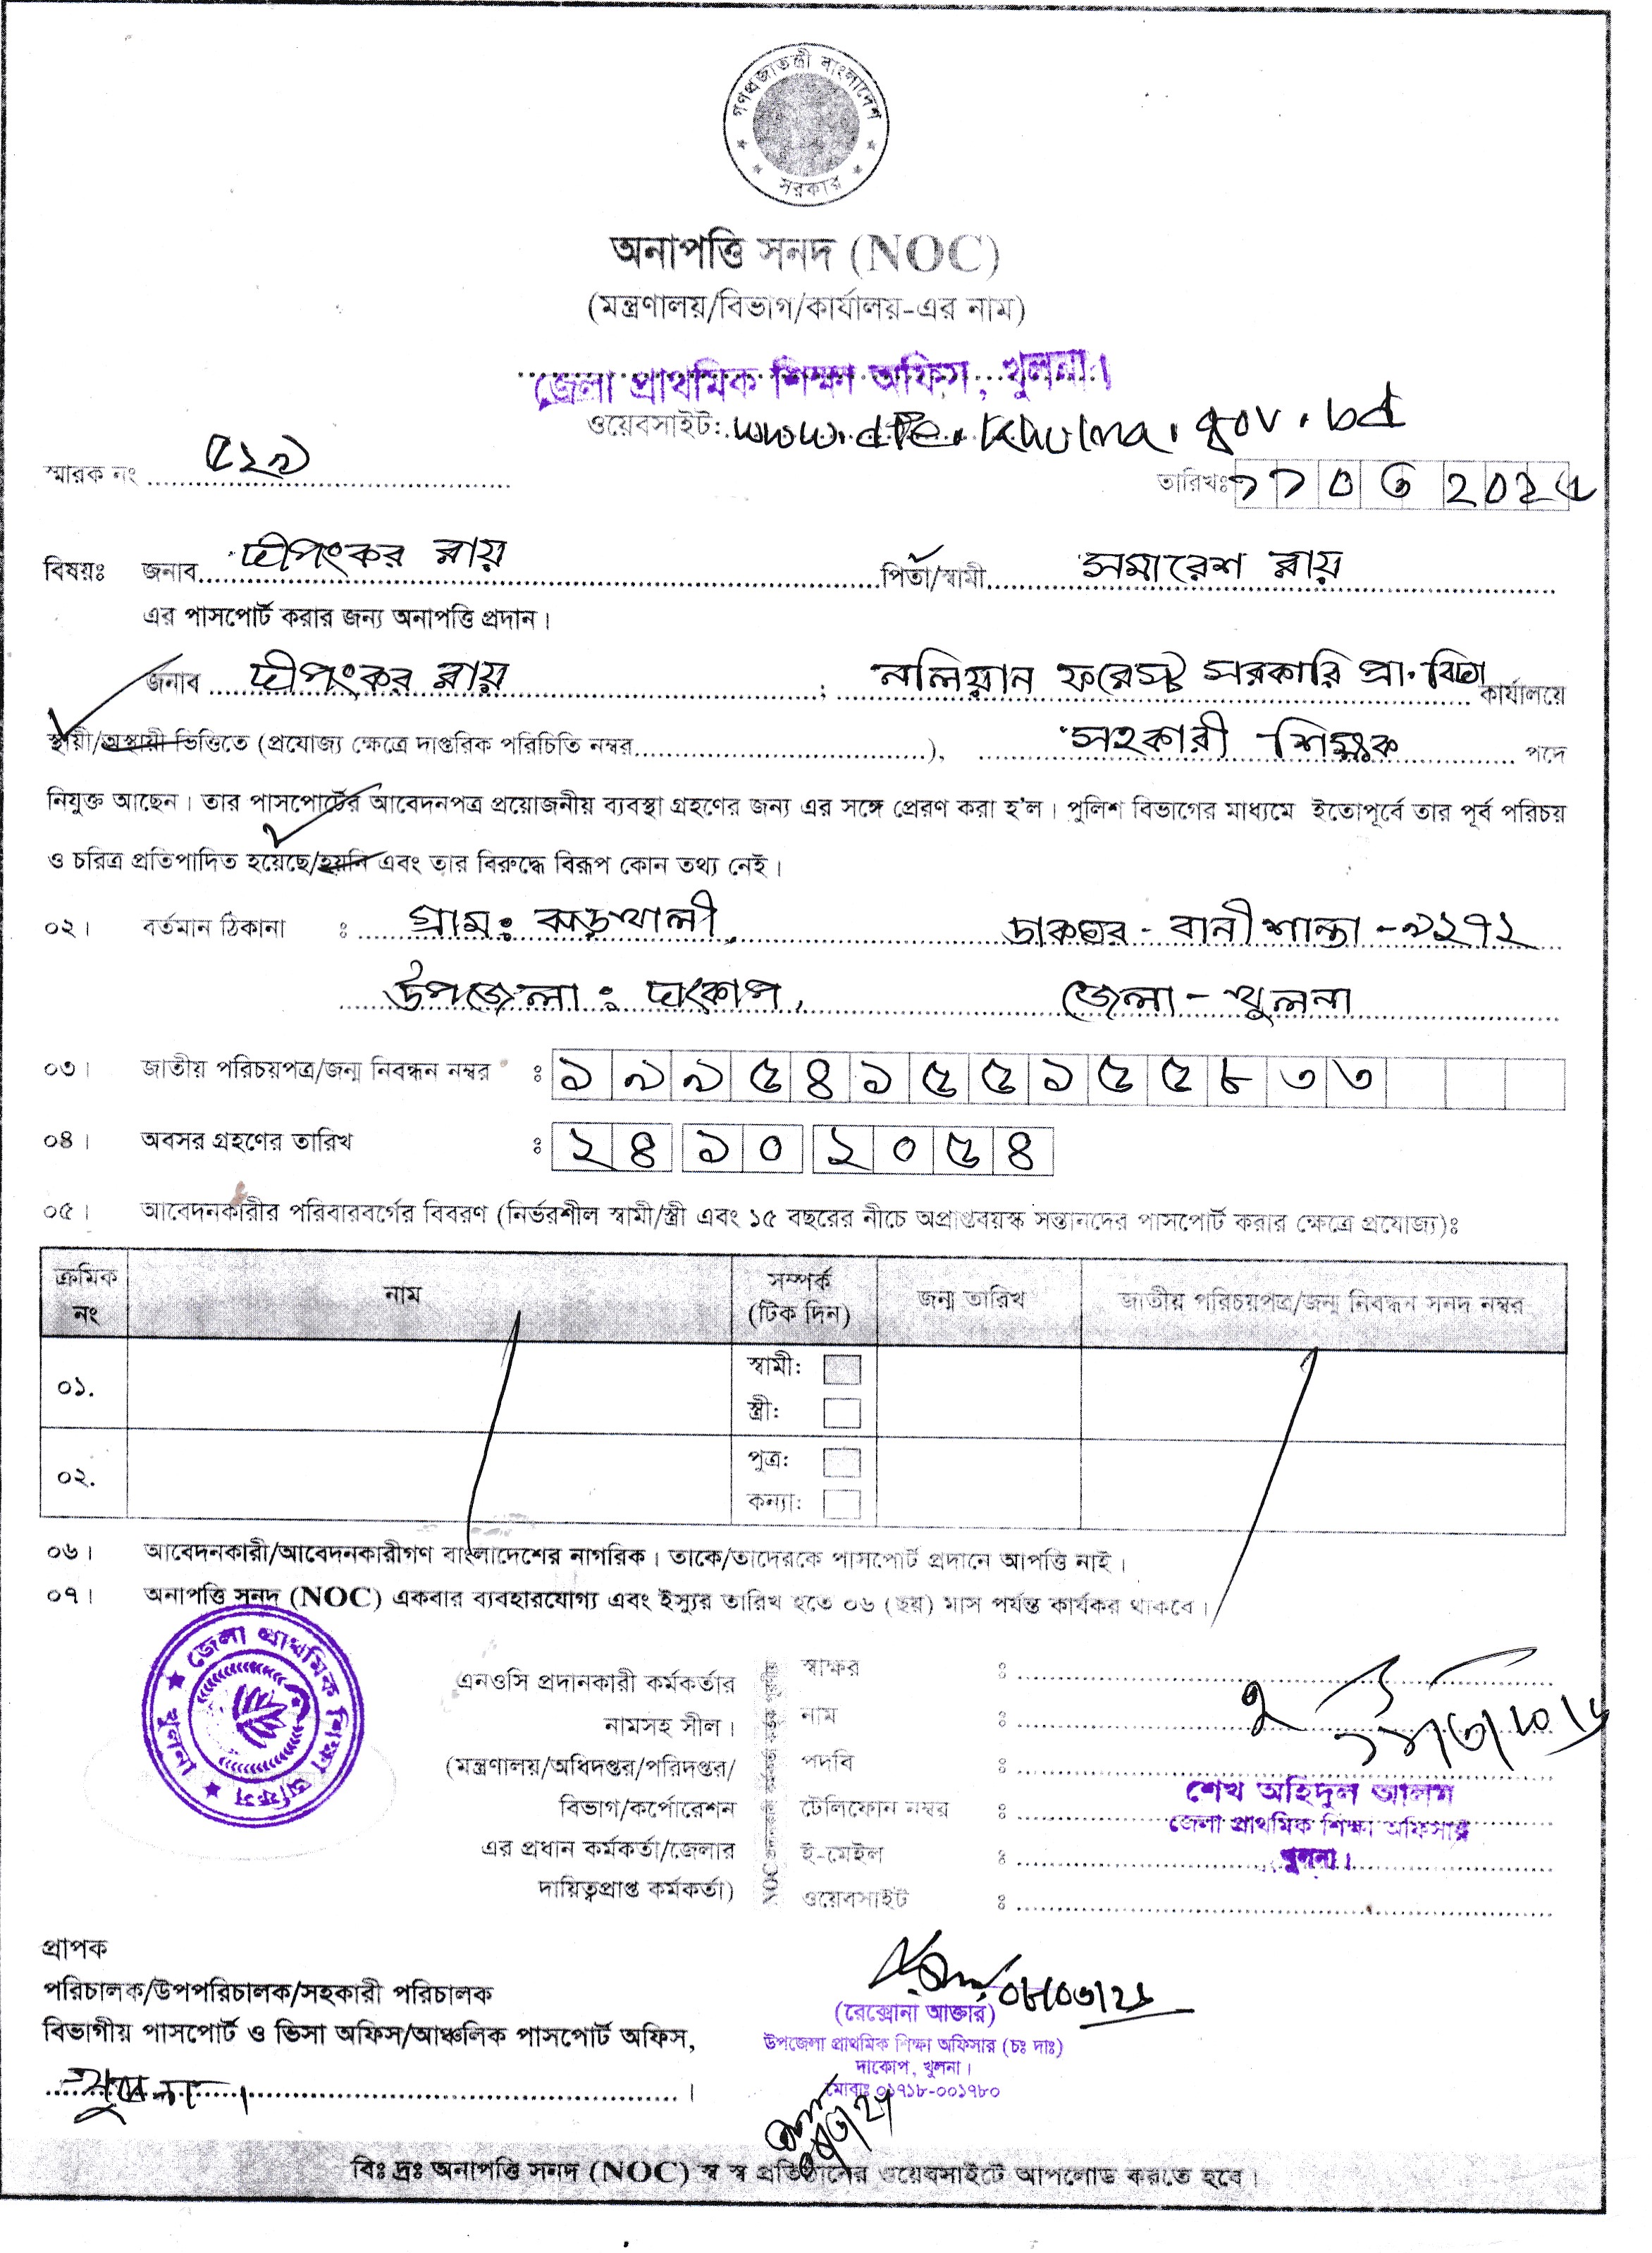 গণপ্রজাতন্ত্রী বাংলাদেশ
সরকার
অনাপত্তি সনদ (NOC)
(মন্ত্রণালয়/বিভাগ/কার্যালয়-এর নাম)
জেলা প্রাথমিক শিক্ষা অফিস, খুলনা।
ওয়েবসাইট: www.dpe.khulna.gov.bd
স্মারক নং ৫২৯ তারিখঃ
বিষয়ঃ জনাব দীপংকর রায় পিতা/স্বামী সমারেশ রায়
এর পাসপোর্ট করার জন্য অনাপত্তি প্রদান।
জনাব দীপংকর রায় ; নলিয়ান ফরেস্ট সরকারি প্রা. বিদ্যা কার্যালয়ে
স্থায়ী/অস্থায়ী ভিত্তিতে (প্রযোজ্য ক্ষেত্রে দাপ্তরিক পরিচিতি নম্বর), সহকারী শিক্ষক পদে
নিযুক্ত আছেন। তার পাসপোর্টের আবেদনপত্র প্রয়োজনীয় ব্যবস্থা গ্রহণের জন্য এর সঙ্গে প্রেরণ করা হ'ল। পুলিশ বিভাগের মাধ্যমে ইতোপূর্বে তার পূর্ব পরিচয়
ও চরিত্র প্রতিপাদিত হয়েছে/হয়নি এবং তার বিরুদ্ধে বিরূপ কোন তথ্য নেই।
০২। বর্তমান ঠিকানা : গ্রাম: ঝড়খালী, ডাকঘর - বানীশান্তা - ৯২৭২
উপজেলা: দাকোপ, জেলা - খুলনা
০৩। জাতীয় পরিচয়পত্র/জন্ম নিবন্ধন নম্বর : ১৯৯৫৪১৫৫১৫৫৮৩৩
০৪। অবসর গ্রহণের তারিখ : ২৪ ১০ ২০৫৪
০৫। আবেদনকারীর পরিবারবর্গের বিবরণ (নির্ভরশীল স্বামী/স্ত্রী এবং ১৫ বছরের নীচে অপ্রাপ্তবয়স্ক সন্তানদের পাসপোর্ট করার ক্ষেত্রে প্রযোজ্য):
ক্রমিক নং নাম সম্পর্ক (টিক দিন) জন্ম তারিখ জাতীয় পরিচয়পত্র/জন্ম নিবন্ধন সনদ নম্বর
০১. স্বামী:
স্ত্রী:
০২. পুত্র:
কন্যা:
০৬। আবেদনকারী/আবেদনকারীগণ বাংলাদেশের নাগরিক। তাকে/তাদেরকে পাসপোর্ট প্রদানে আপত্তি নাই।
০৭। অনাপত্তি সনদ (NOC) একবার ব্যবহারযোগ্য এবং ইস্যুর তারিখ হতে ০৬ (ছয়) মাস পর্যন্ত কার্যকর থাকবে।
জেলা প্রাথমিক শিক্ষা অফিস
খুলনা
এনওসি প্রদানকারী কর্মকর্তার
নামসহ সীল।
(মন্ত্রণালয়/অধিদপ্তর/পরিদপ্তর/
বিভাগ/কর্পোরেশন
এর প্রধান কর্মকর্তা/জেলার
দায়িত্বপ্রাপ্ত কর্মকর্তা)
স্বাক্ষর :
নাম :
পদবি :
টেলিফোন নম্বর :
ই-মেইল :
ওয়েবসাইট :
শেখ অহিদুল আলম
জেলা প্রাথমিক শিক্ষা অফিসার
খুলনা।
প্রাপক
পরিচালক/উপপরিচালক/সহকারী পরিচালক
বিভাগীয় পাসপোর্ট ও ভিসা অফিস/আঞ্চলিক পাসপোর্ট অফিস,
খুলনা।
(রেক্সোনা আক্তার)
উপজেলা প্রাথমিক শিক্ষা অফিসার (চঃ দাঃ)
দাকোপ, খুলনা।
মোবাঃ ০১৭১৮-০০১৭৮০
বিঃ দ্রঃ অনাপত্তি সনদ (NOC) স্ব স্ব প্রতিষ্ঠানের ওয়েবসাইটে আপলোড করতে হবে।